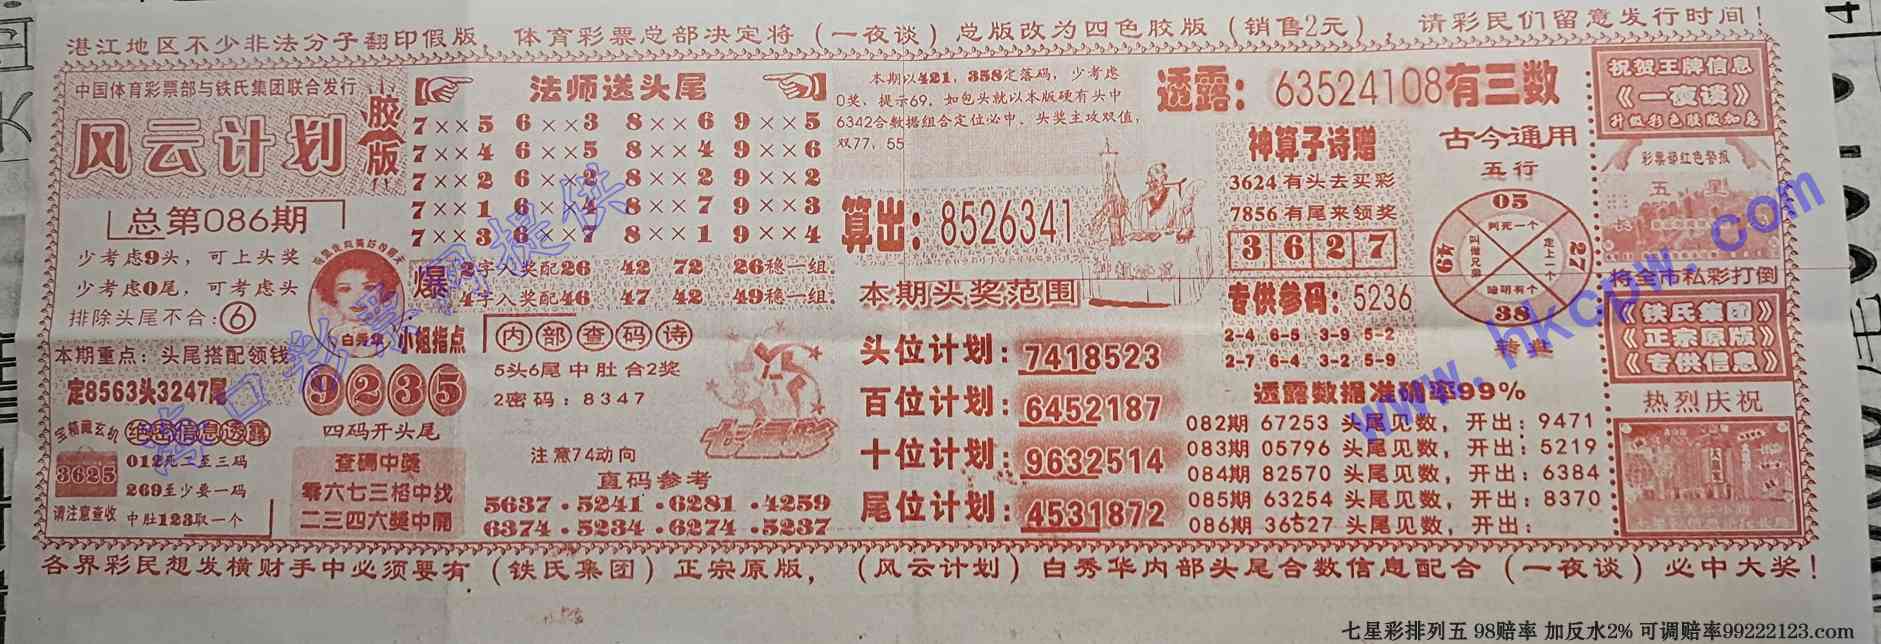 湛江地区不少非法分子翻印假版，体育彩票总部决定将（一夜谈）总版改为四色胶版（销售2元），请彩民们留意发行时间！
中国体育彩票部与铁氏集团联合发行
风云计划
胶版
总第086期
少考虑9头，可上头奖
少考虑0尾，可考虑头
排除头尾不合：6
白秀华
小姐指点
本期重点：头尾搭配领钱
定8563头3247尾
9235
四码开头尾
宝箱藏玄机
绝密信息透露
3625
012死二至三码
269至少要一码
请注意查收
中肚123取一个
查码中奖
零六七三招中找
二三四六奖中開
法师送头尾
7××5 6××3 8××6 9××5
7××4 6××5 8××4 9××6
7××2 6××2 8××2 9××2
7××1 6××4 8××7 9××3
7××3 6××7 8××1 9××4
爆
2字入奖配26 42 72 26稳一组.
4字入奖配46 47 42 49稳一组.
内部查码诗
5头6尾中肚合2奖
2密码：8347
注意74动向
七星彩
直码参考
5637·5241·6281·4259
6374·5234·6274·5237
本期以421，358定落码，少考虑
0奖，提示69，如包头就以本版硬有头中
6342合数据组合定位必中，头奖主攻双值，
双77，55
算出：8526341
本期头奖范围
头位计划：7418523
百位计划：6452187
十位计划：9632514
尾位计划：4531872
透露：63524108有三数
神算子诗赠
3624有头去买彩
7856有尾来领奖
3627
专供参码：5236
2-4 6-5 3-9 5-2
2-7 6-4 3-2 5-9
古今通用
五行
05
判死一个
49
27
定上一个
38
转盘
透露数据准确率99%
082期 67253 头尾见数，开出：9471
083期 05796 头尾见数，开出：5219
084期 82570 头尾见数，开出：6384
085期 63254 头尾见数，开出：8370
086期 36527 头尾见数，开出：
祝贺王牌信息
《一夜谈》
升级彩色胶版加急
彩票部红色警报
五星
将全市私彩打倒
《铁氏集团》
《正宗原版》
《专供信息》
热烈庆祝
各界彩民想发横财手中必须要有（铁氏集团）正宗原版，（风云计划）白秀华内部头尾合数信息配合（一夜谈）必中大奖！
海口彩票网提供
www.hkcpw.com
七星彩排列五 98赔率 加反水2% 可调赔率99222123.com